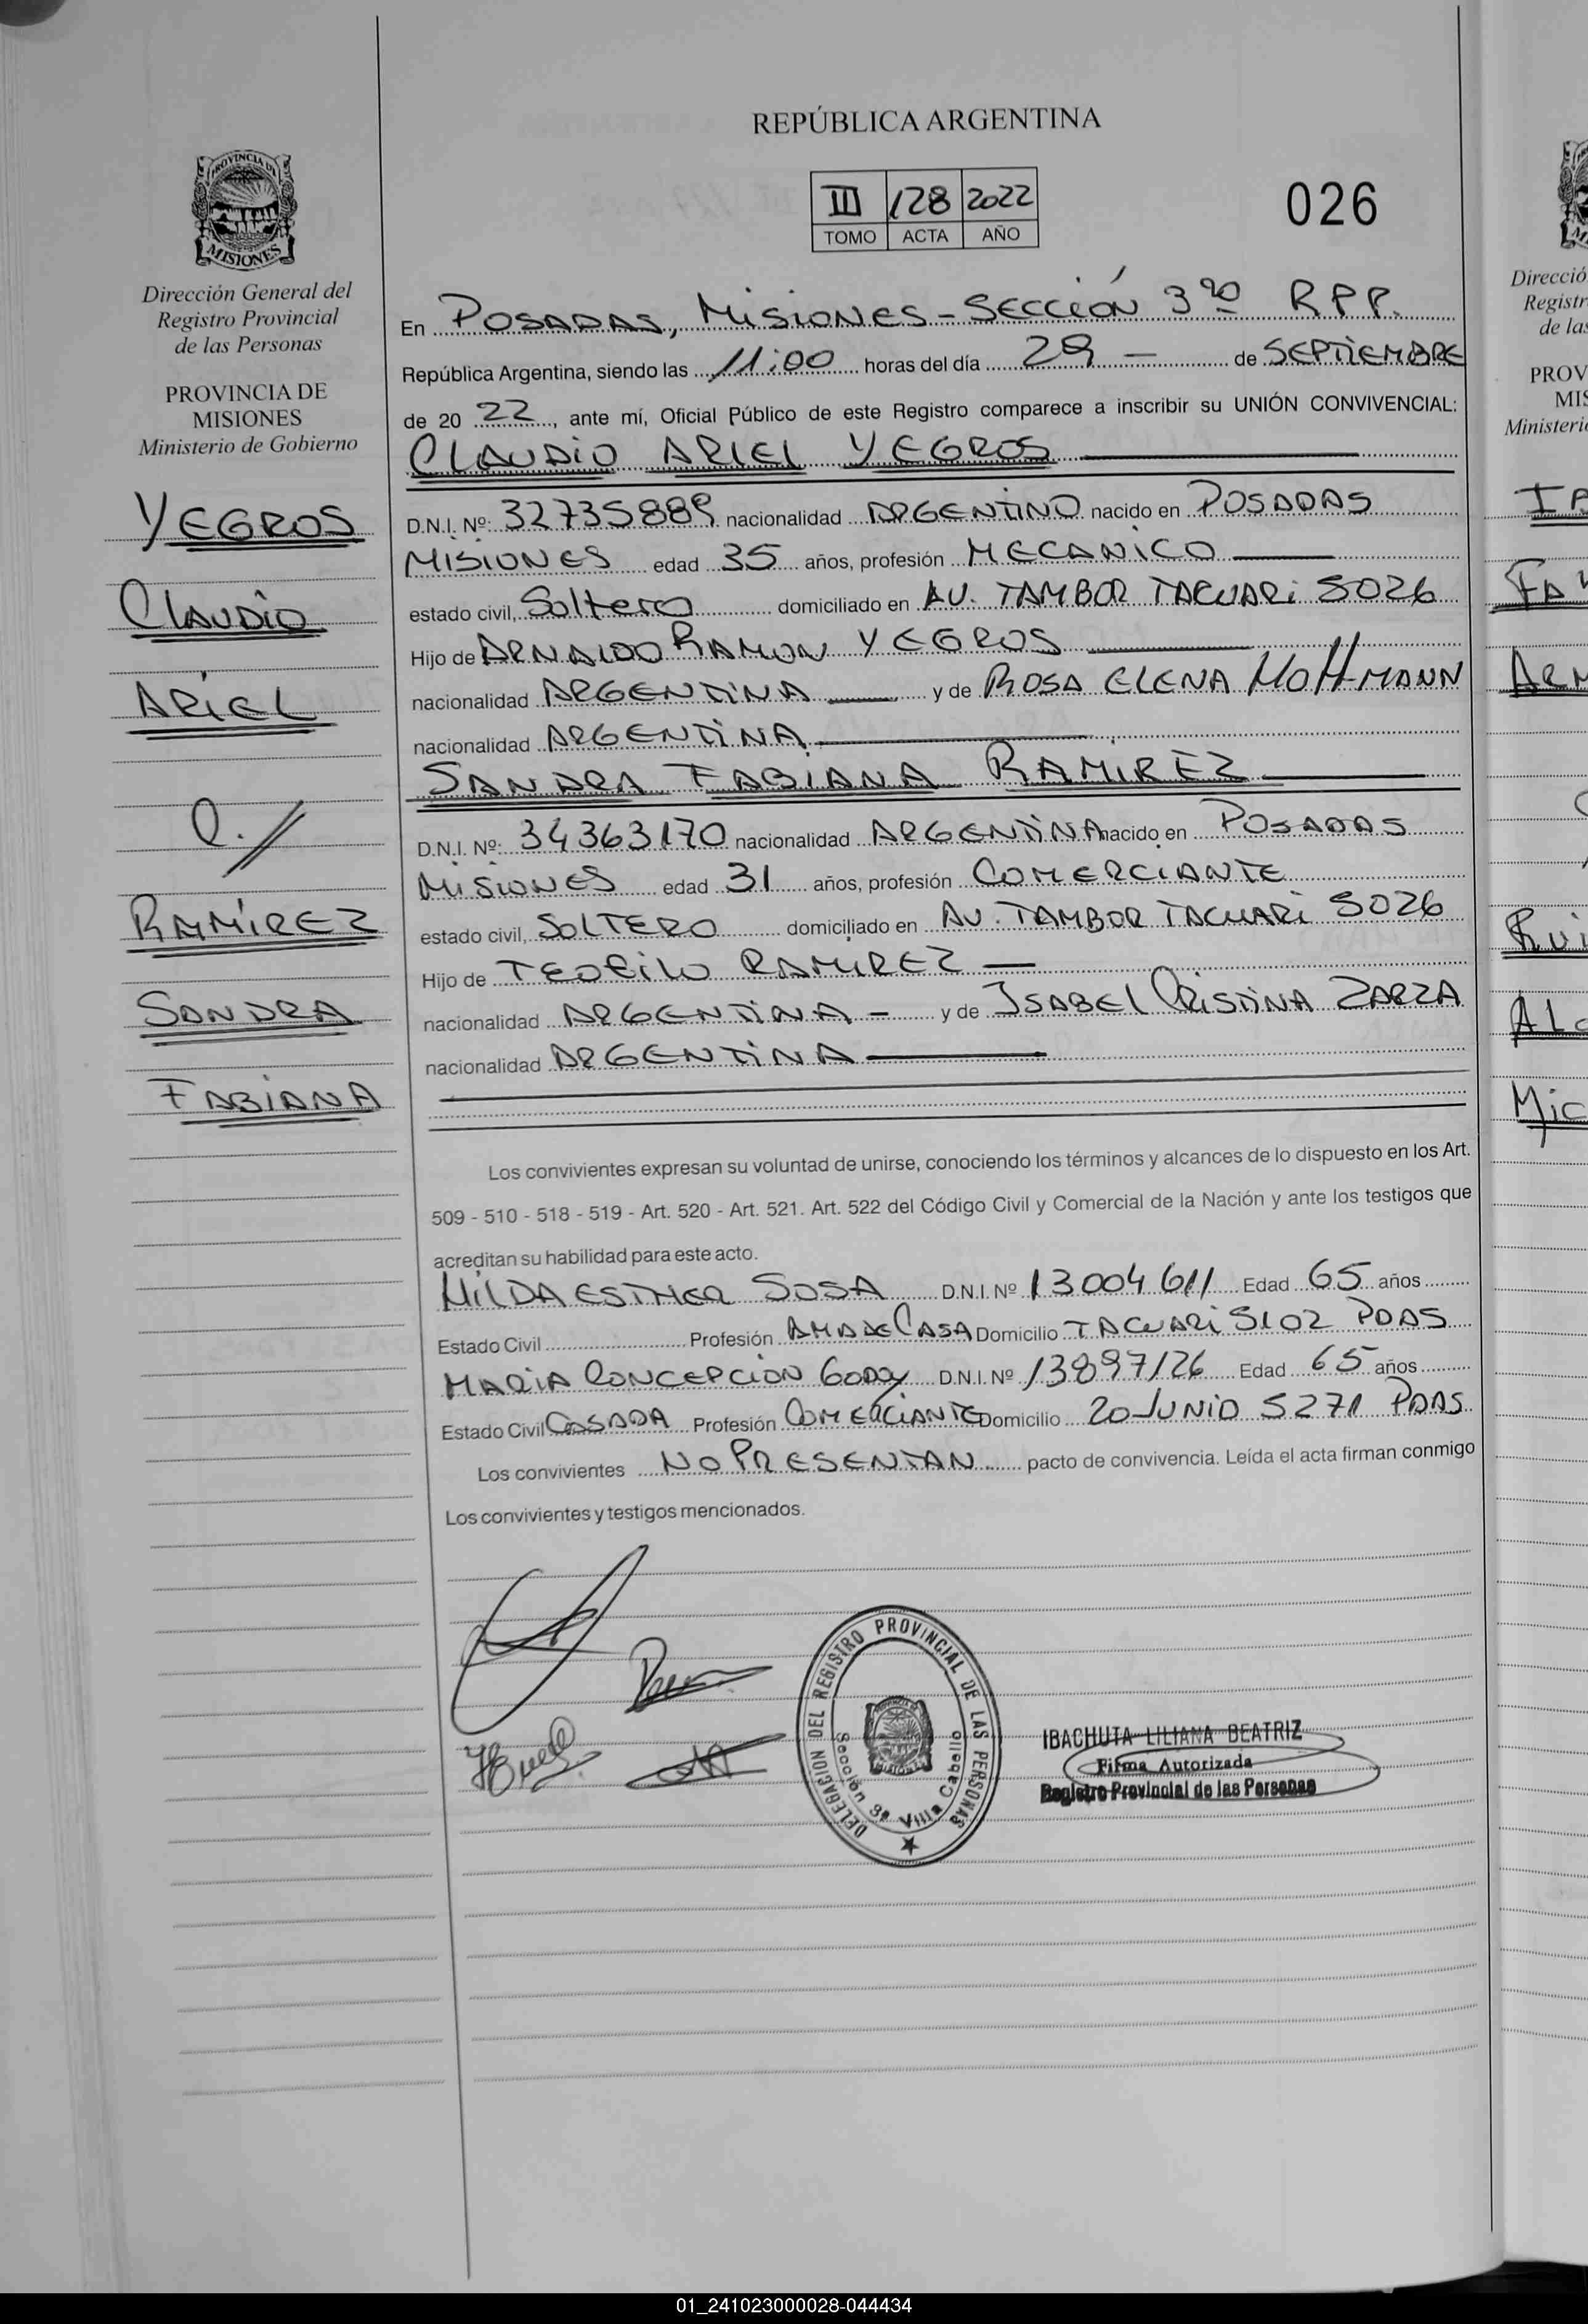 REPÚBLICA ARGENTINA
III 128 2022
TOMO ACTA AÑO
026
PROVINCIA DE
MISIONES
Dirección General del
Registro Provincial
de las Personas
PROVINCIA DE
MISIONES
Ministerio de Gobierno
YEGROS
CLAUDIO
ARIEL
C.//
RAMÍREZ
SANDRA
FABIANA
En POSADAS, MISIONES - SECCIÓN 3ra RPP.
República Argentina, siendo las 11:00 horas del día 29 — de SEPTIEMBRE
de 20 22, ante mí, Oficial Público de este Registro comparece a inscribir su UNIÓN CONVIVENCIAL:
CLAUDIO ARIEL YEGROS
D.N.I. Nº: 32735889 nacionalidad ARGENTINO nacido en POSADAS
MISIONES edad 35 años, profesión MECANICO
estado civil, Soltero domiciliado en AV. TAMBOR TACUARi 5026
Hijo de ARNALDO RAMON YEGROS
nacionalidad ARGENTINA y de ROSA ELENA HOFFMANN
nacionalidad ARGENTINA
SANDRA FABIANA RAMIREZ
D.N.I. Nº: 34363170 nacionalidad ARGENTINA nacido en POSADAS
MISIONES edad 31 años, profesión COMERCIANTE
estado civil, SOLTERO domiciliado en AV. TAMBOR TACUARi 5026
Hijo de TEOFILO RAMIREZ —
nacionalidad ARGENTINA - y de ISABEL CRISTINA ZARZA
nacionalidad ARGENTINA
Los convivientes expresan su voluntad de unirse, conociendo los términos y alcances de lo dispuesto en los Art.
509 - 510 - 518 - 519 - Art. 520 - Art. 521. Art. 522 del Código Civil y Comercial de la Nación y ante los testigos que
acreditan su habilidad para este acto.
HILDA ESTHER SOSA D.N.I. Nº 13004611 Edad 65 años
Estado Civil Profesión AMA DE CASA Domicilio TACUARi 5102 PDAS
MARIA CONCEPCION GODOY D.N.I. Nº 13897126 Edad 65 años
Estado Civil CASADA Profesión COMERCIANTE Domicilio 20 JUNIO 5271 PDAS.
Los convivientes NO PRESENTAN pacto de convivencia. Leída el acta firman conmigo
Los convivientes y testigos mencionados.
DELEGACION DEL REGISTRO PROVINCIAL DE LAS PERSONAS
Sección 3ª Villa Cabello
IBACHUTA LILIANA BEATRIZ
Firma Autorizada
Registro Provincial de las Personas
01_241023000028-044434